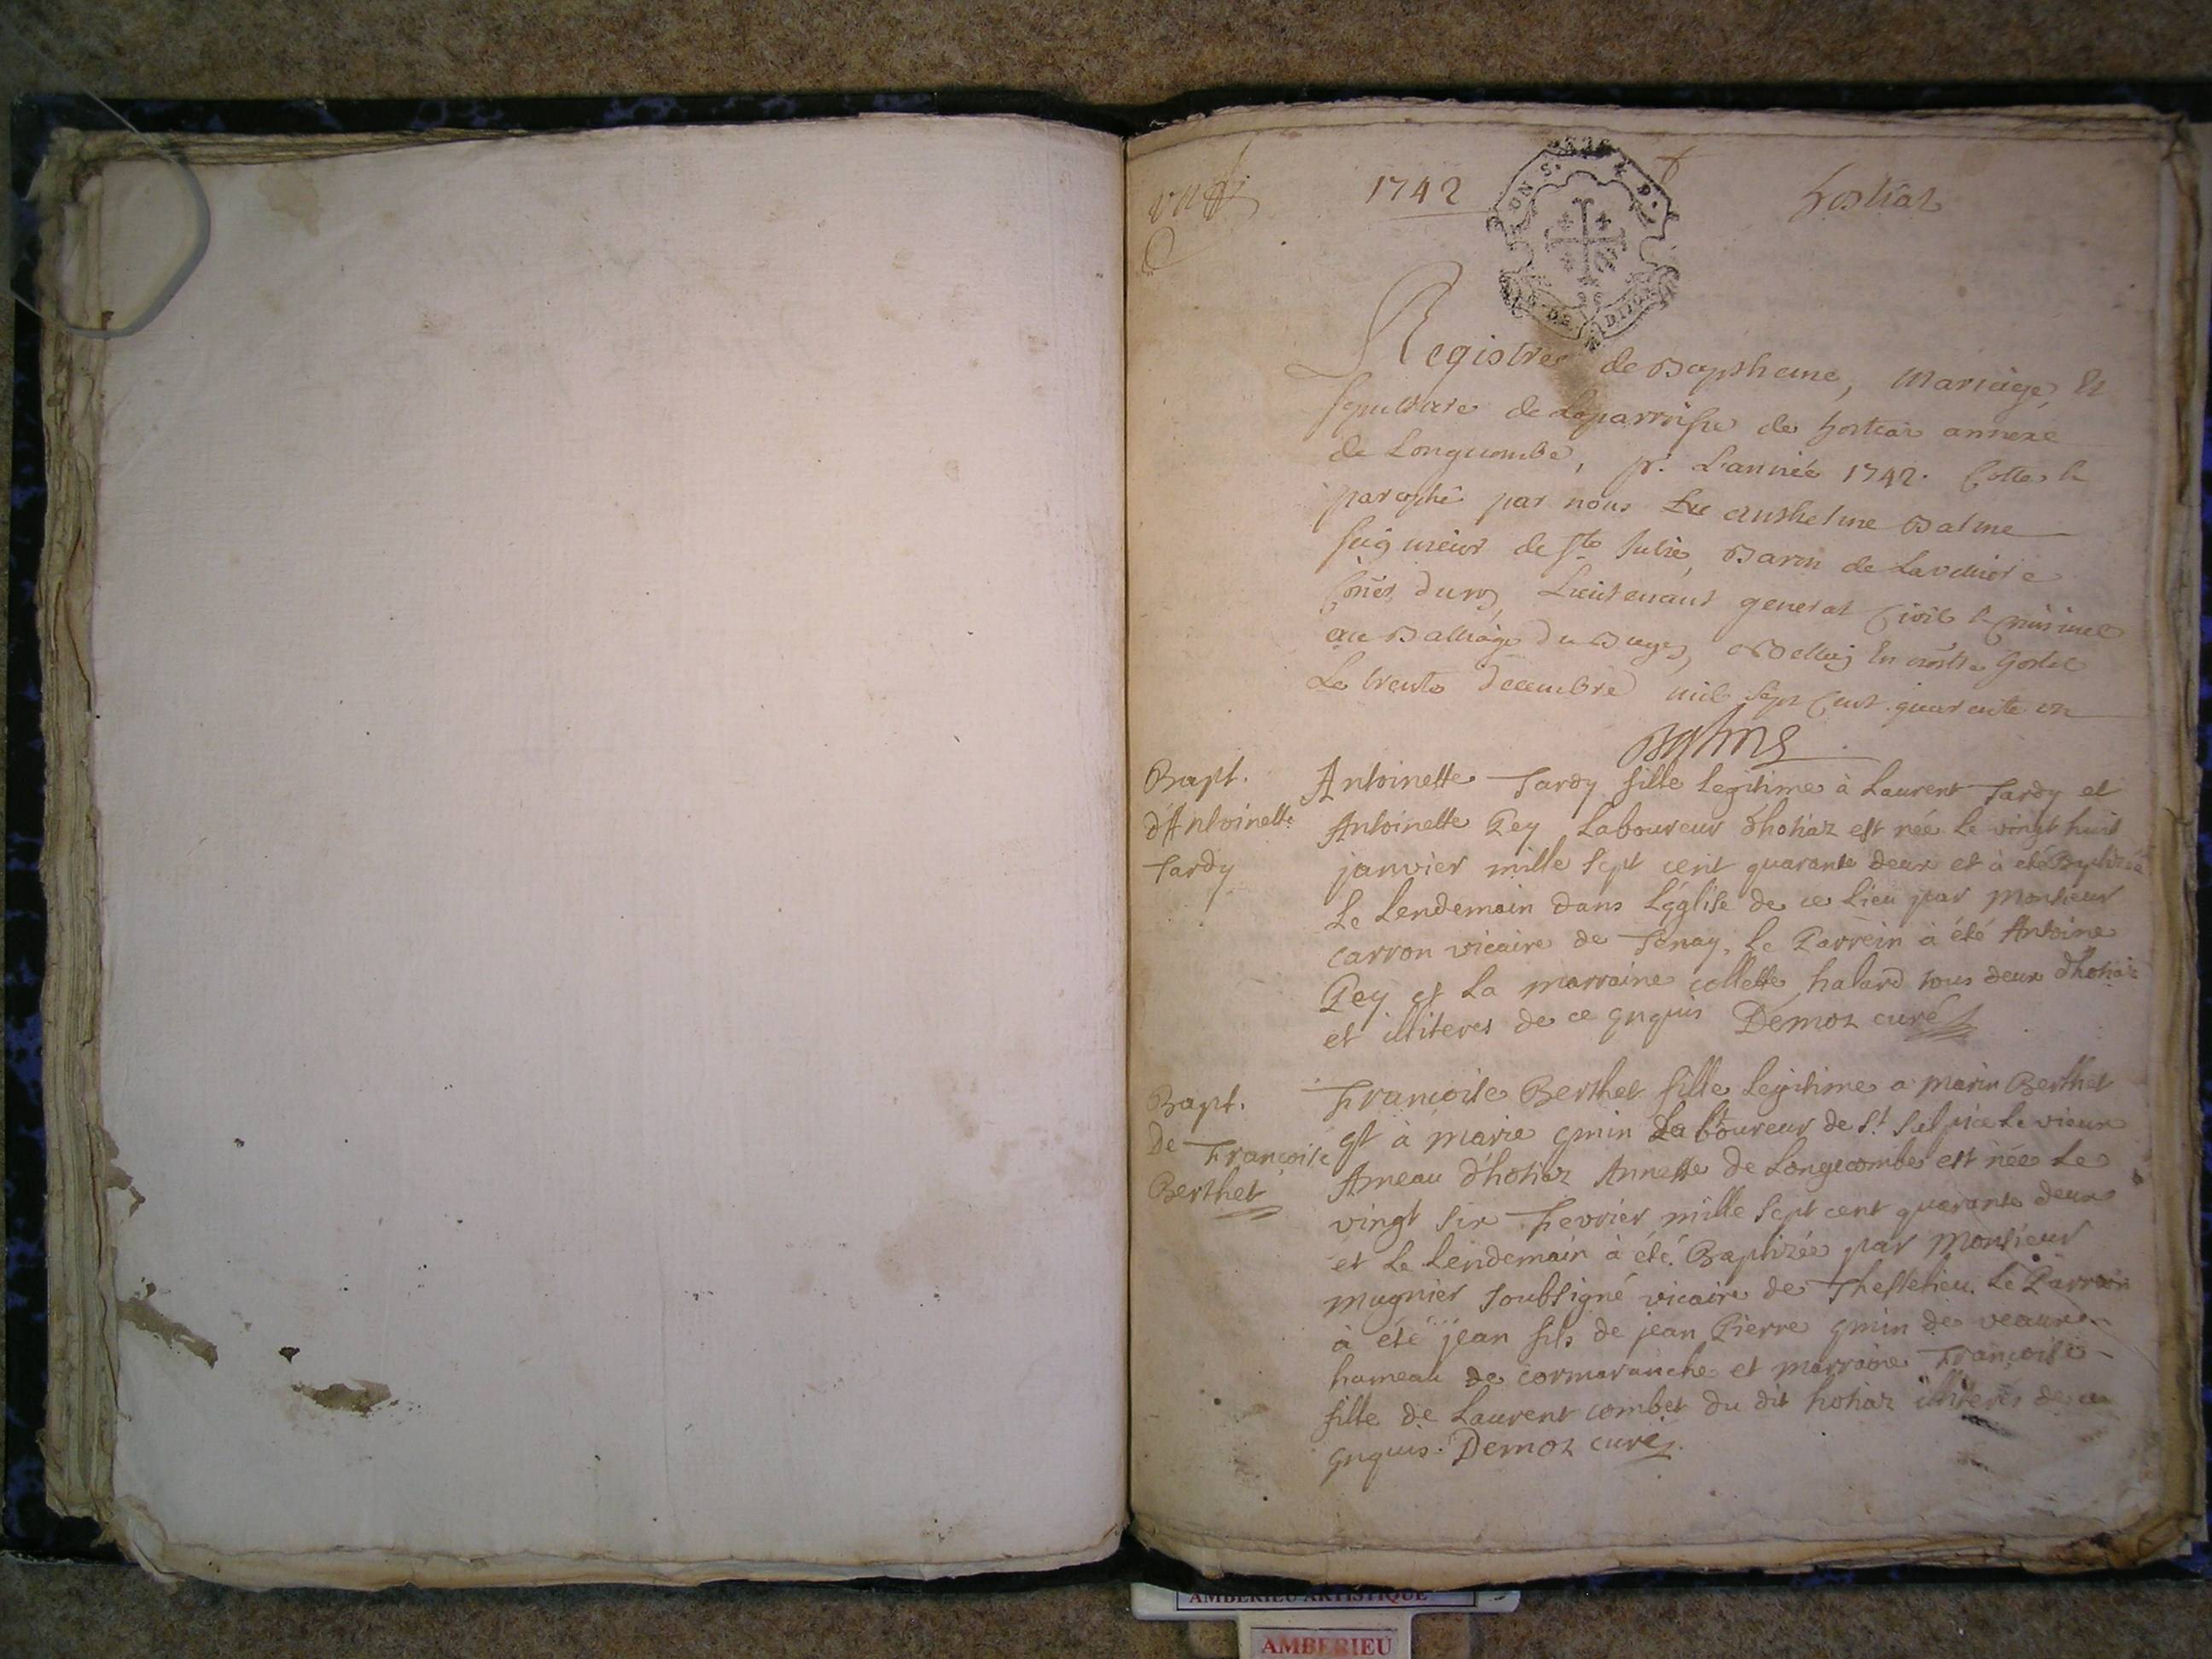 1742
hostiaz
Registre de Bapsheme, Mariage, Et
sepulture de Laparroisse de hostiaz annexe
de Longuombe, pr. L'année 1742. Cottes &
paraphé par nous anthelme Balme
seigneur de Ste Julie, Baron de
Coner du roy, Lieutenant general Civil & Criminel
au Balliage du Bugey, a Belley En nostre hostel
Le trente Decembre mil sept cent quarante un
Balme
Bapt.
d'Antoinette
Tardy
Antoinette Tardy fille legitime à Laurent Tardy et
Antoinette Pey Laboureur d'hotiaz est née le vingt huit
janvier mille sept cent quarante deux et à été Baptizée
Le Lendemain dans L'église de ce Lieu par Monsieur
carron vicaire de Tenay, Le Parrein à été Antoine
Pey et La marraine collette halard tous deux d'hotiaz
et illiteres de ce enquis Demoz curé
Bapt.
De Françoise
Berthet
Françoise Berthet fille Legitime a marin Berthet
et à marie gmin Laboureur de St Sulpice Le vieux
Ameau d'hotiaz Annesse de Longecombe est née Le
vingt six Fevrier mille sept cent quarante deux
et Le Lendemain à été Baptizée par Monsieur
mugnier soubsigné vicaire de Thesselieu. Le Parrein
à été jean fils de jean Pierre gmin de veaux
hameau de cormaranche et marraine Françoise
fille de Laurent combet du dit hotiaz illiterés de ce
enquis. Demoz curé.
AMBERIEU ARTISTIQUE
AMBERIEU